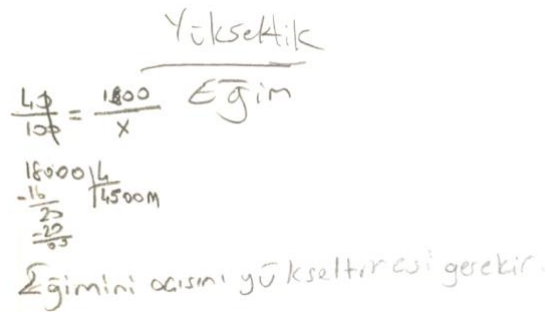 Yükseklik
Eğim
40/100 = 1800/x
18000 | 4
-16 | 4500m
20
-20
05
Eğimini acısını yükseltmesi gerekir.